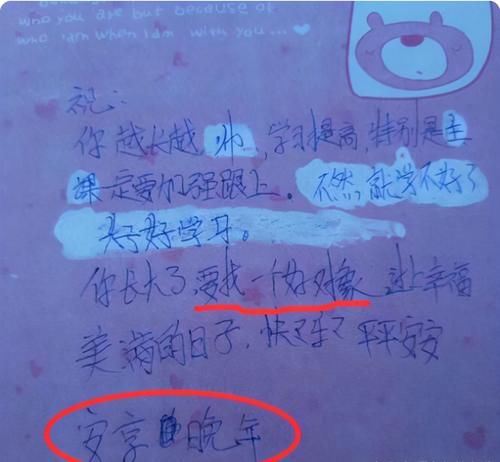 who you are but because of
who iam when I am with you...
祝:
你越长越帅,学习提高,特别是主
课一定要加强跟上。不然,就学不好了
好好学习。
你长大了要找一个好对象 过上幸福
美满的日子,快快乐乐 平平安安
安享晚年